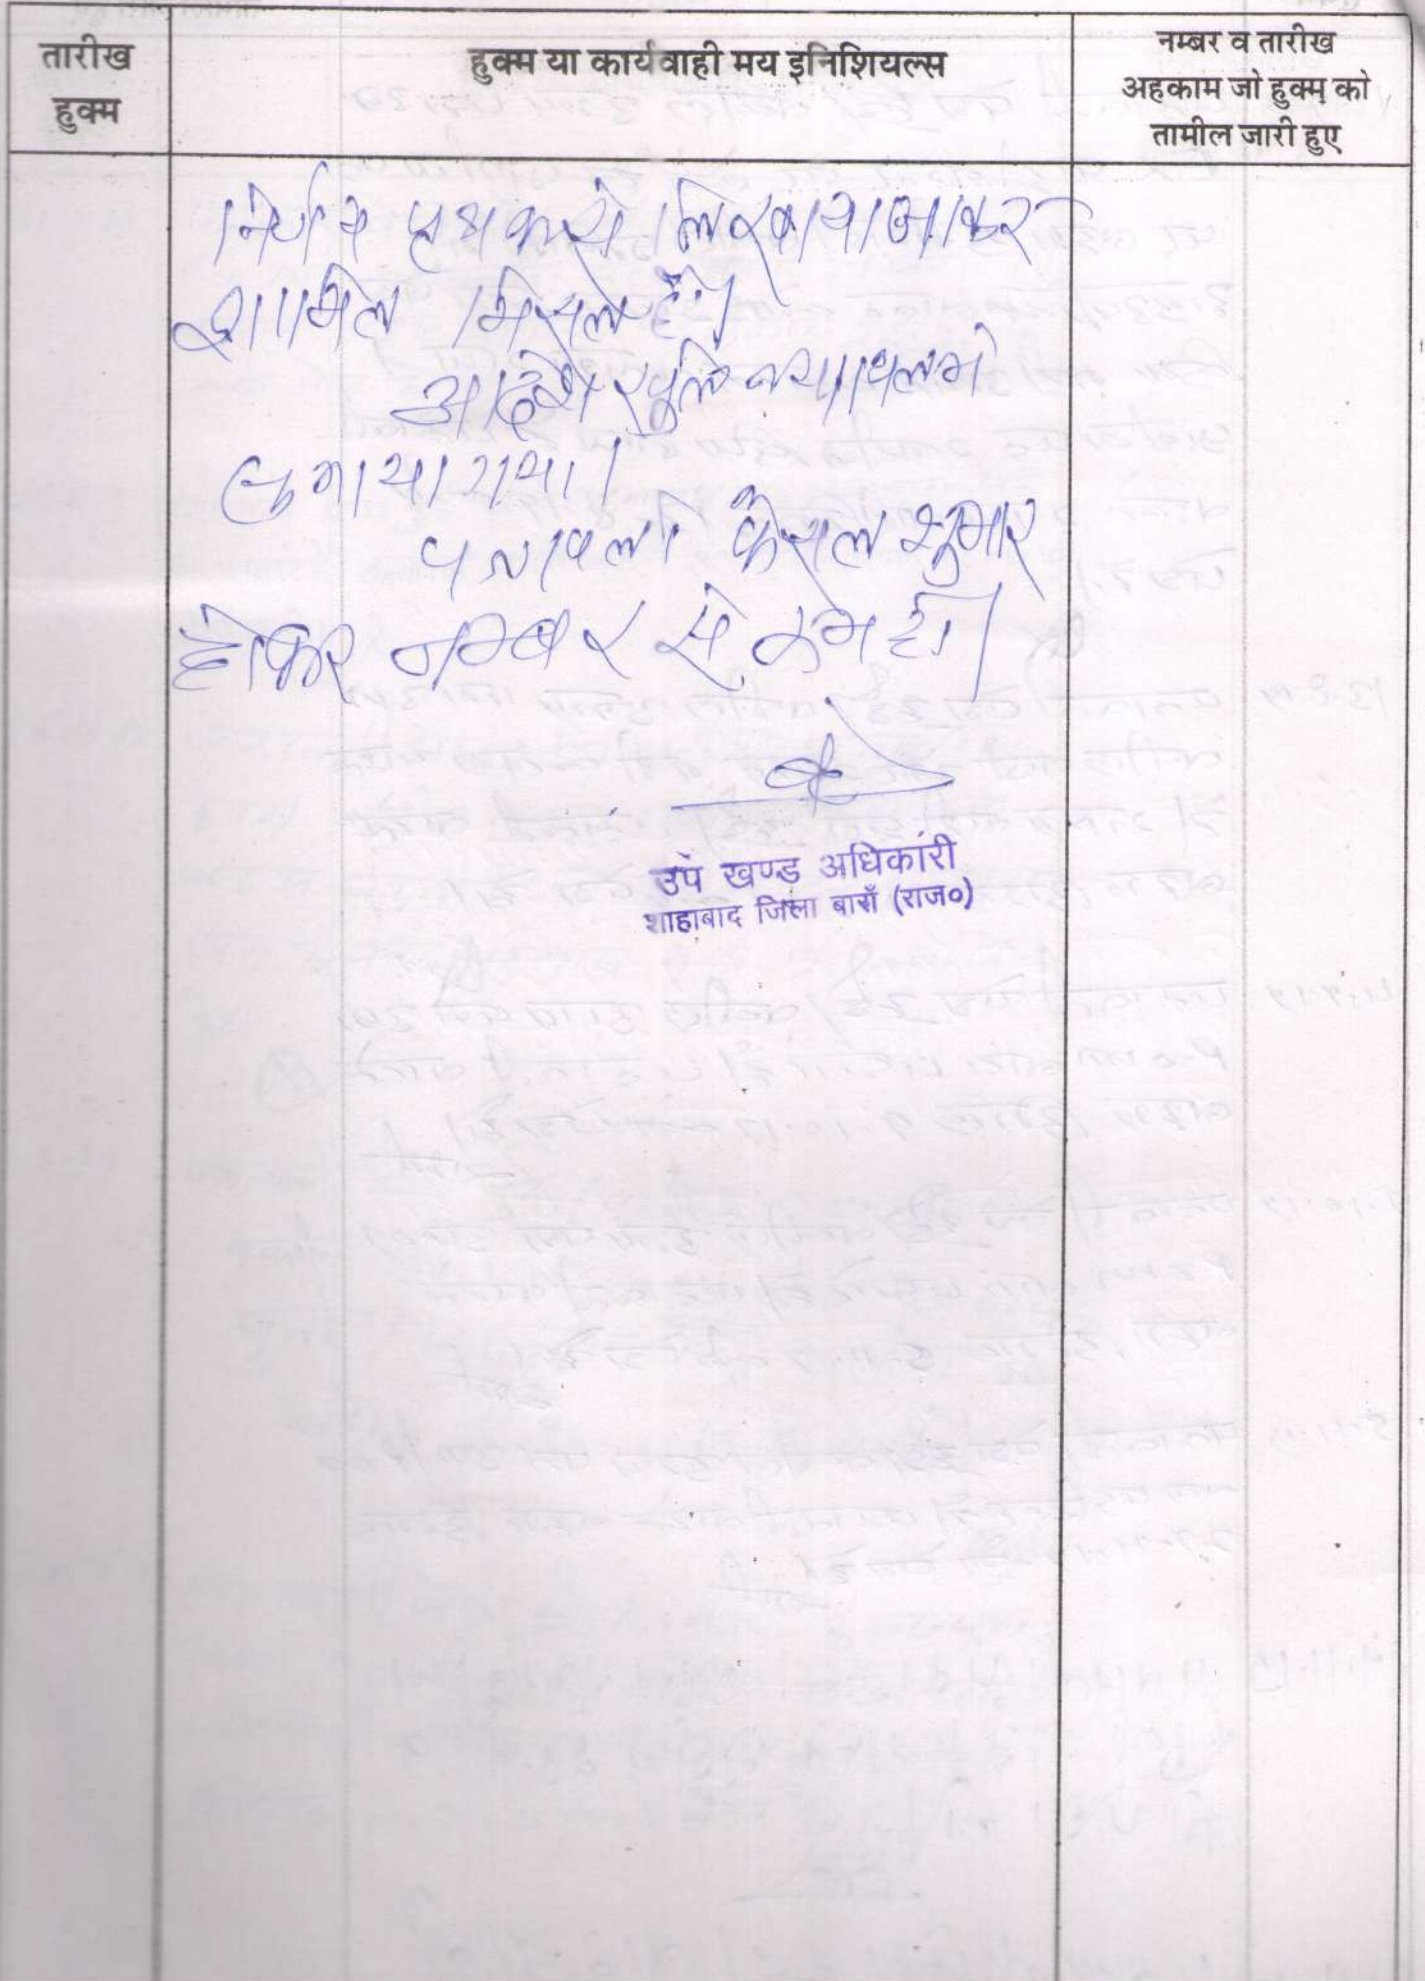 तारीख
हुक्म
हुक्म या कार्यवाही मय इनिशियल्स
नम्बर व तारीख
अहकाम जो हुक्म को
तामील जारी हुए
निर्णय पृथक से लिखाया जाकर
शामिल मिसल हो।
आदेश खुले न्यायालय मे
सुनाया गया।
पत्रावली फैसल शुमार
होकर नम्बर से कम हो।
उप खण्ड अधिकारी
शाहाबाद जिला बाराँ (राज०)